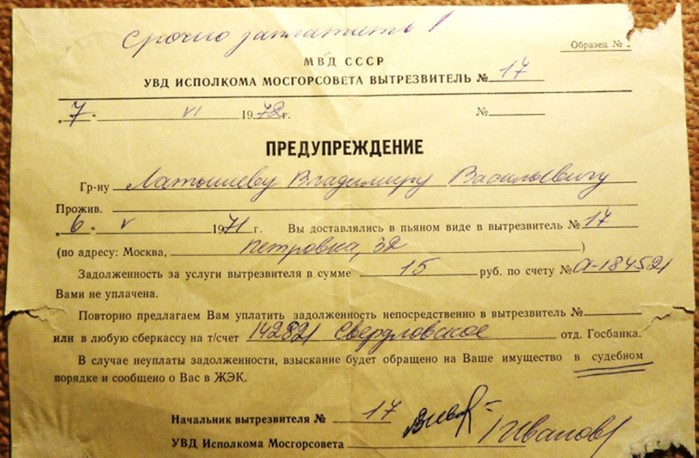 Срочно заплатить!
Образец №
МВД СССР
УВД ИСПОЛКОМА МОСГОРСОВЕТА ВЫТРЕЗВИТЕЛЬ № 17
„7“ VI 1972г. №
ПРЕДУПРЕЖДЕНИЕ
Гр-ну Латышеву Владимиру Васильевичу
Прожив.
„6“ V 1971 г. Вы доставлялись в пьяном виде в вытрезвитель № 17
(по адресу: Москва, Петровка, 32 )
Задолженность за услуги вытрезвителя в сумме 15 руб. по счету № А-184521
Вами не уплачена.
Повторно предлагаем Вам уплатить задолженность непосредственно в вытрезвитель №
или в любую сберкассу на т/счет 142821 Свердловское отд. Госбанка.
В случае неуплаты задолженности, взыскание будет обращено на Ваше имущество в судебном
порядке и сообщено о Вас в ЖЭК.
Начальник вытрезвителя № 17
УВД Исполкома Мосгорсовета Иванов